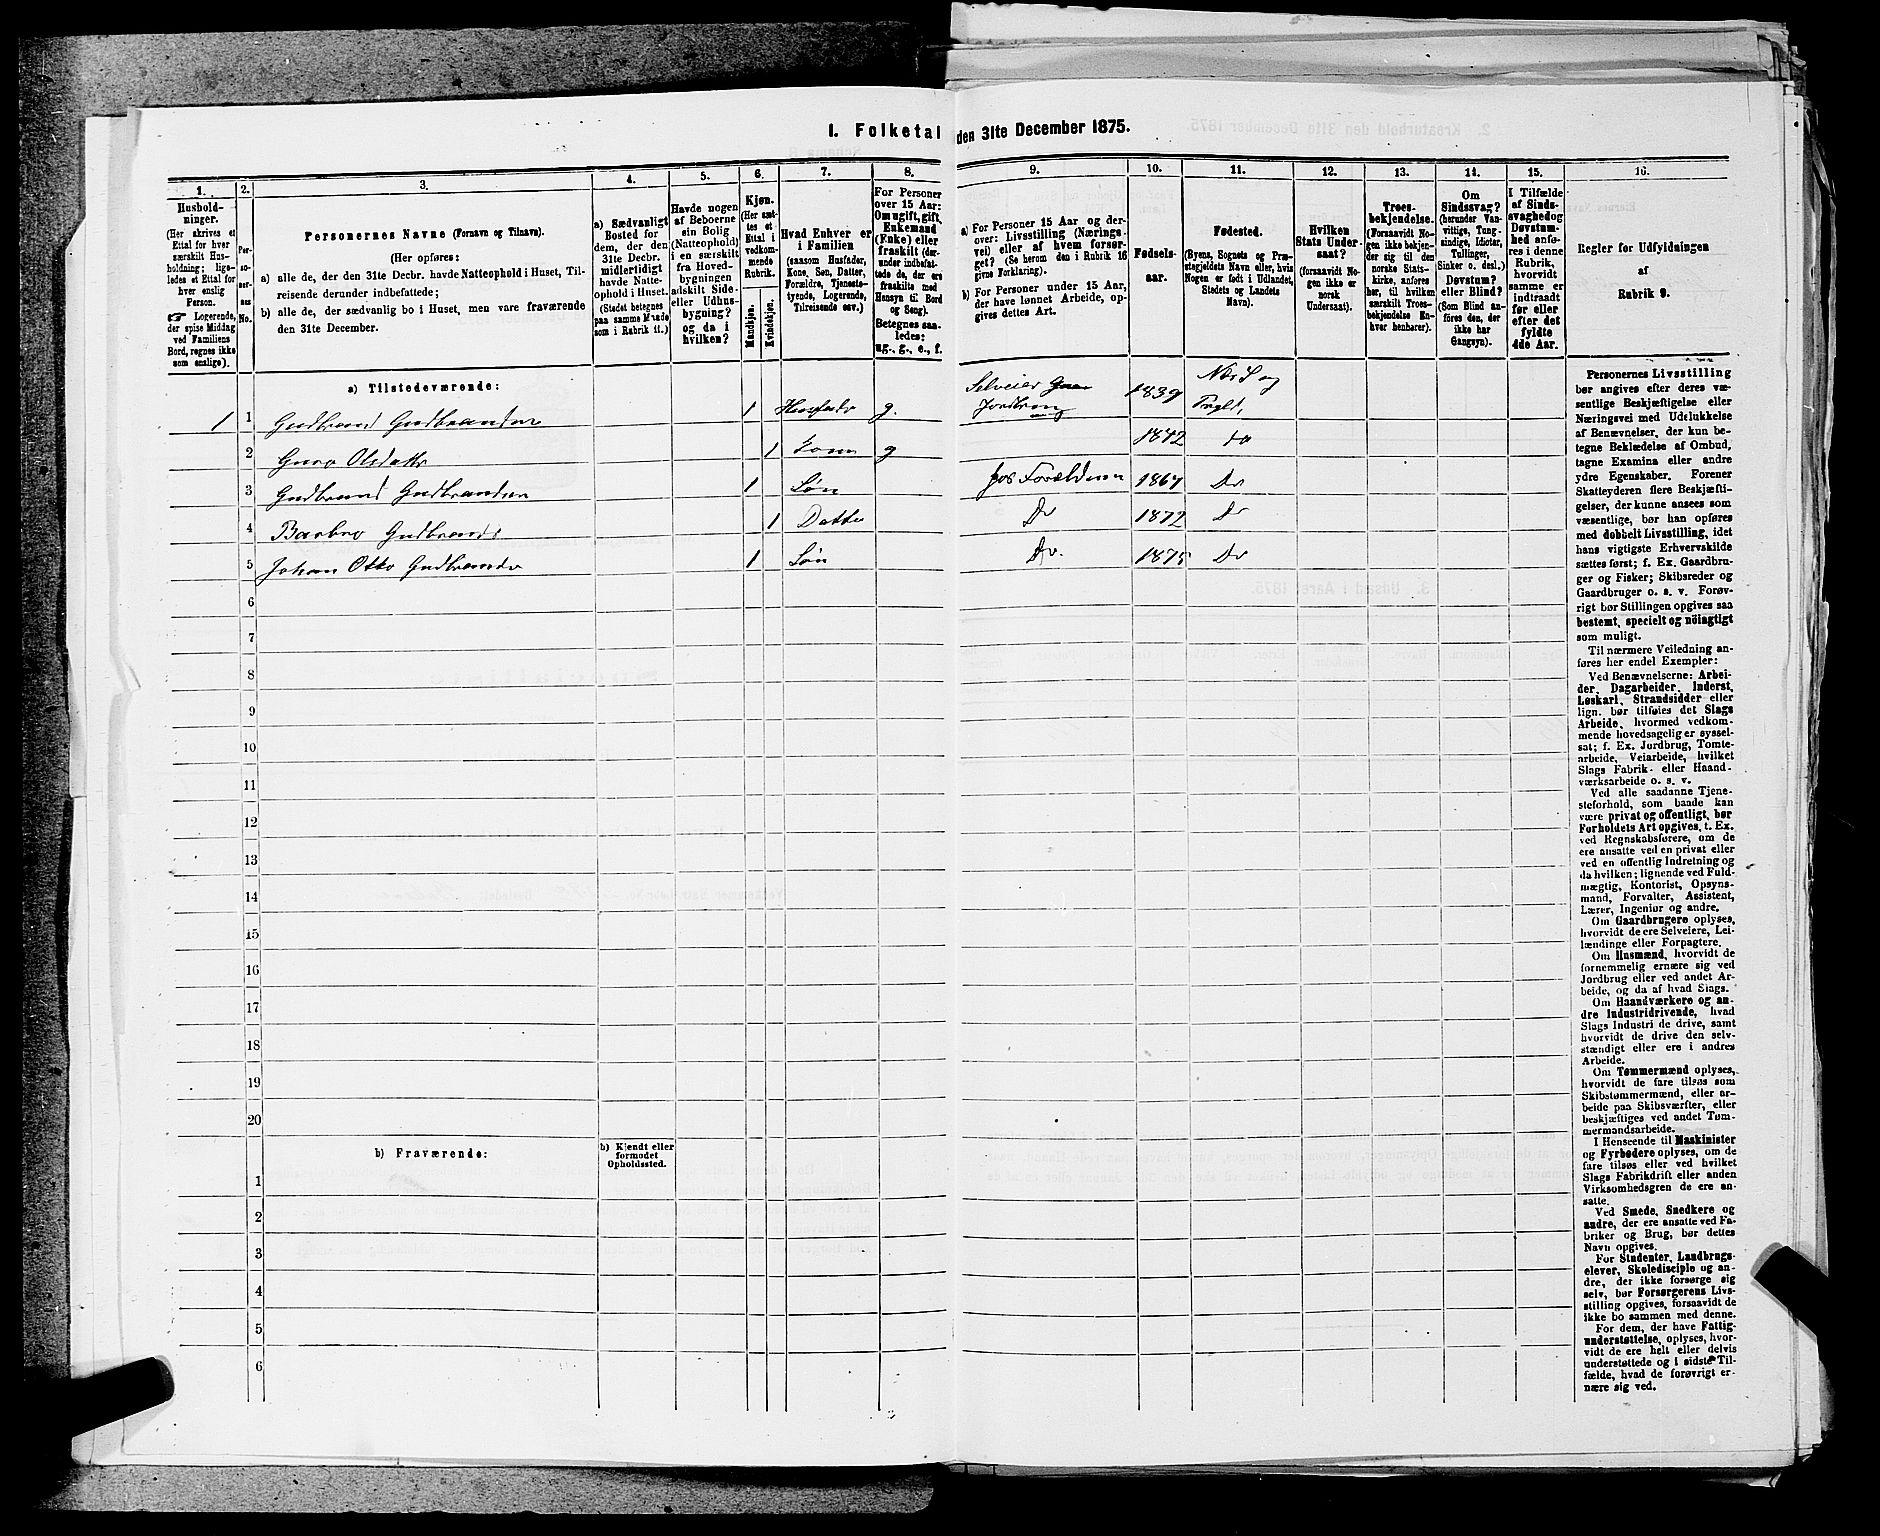 1. Folketal den 31te December 1875.
1.
2.
3.
4.
5.
6.
7.
8.
9.
10.
11.
12.
13.
14.
15.
16.
Hushold-
ninger.
(Her skrives et
Ettal for hver
særskilt Hus-
holdning; lige-
ledes et Ettal for
hver enslig
Person.
☛ Logerende,
der spise Middag
ved Familiens
Bord, regnes ikke
som enslige).
Per-
so-
ner-
nes
No.
Personernes Navne (Fornavn og Tilnavn).
(Her opføres:
a) alle de, der den 31te Decbr. havde Natteophold i Huset, Til-
reisende derunder indbefattede;
b) alle de, der sædvanlig bo i Huset, men vare fraværende
den 31te December.
a) Sædvanligt
Bosted for
dem, der den
31te Decbr.
midlertidigt
havde Natte-
ophold i Huset.
(Stedet betegnes
paa samme Maade
som i Rubrik 11.)
Havde nogen
af Beboerne
sin Bolig
(Natteophold)
i en særskilt
fra Hoved-
bygningen
adskilt Side-
eller Udhus-
bygning?
og da i
hvilken?
Kjøn.
(Her sæt-
tes et
Ettal i
vedkom-
mende
Rubrik.
Mandkjøn.
Kvindekjøn.
Hvad Enhver er
i Familien
(saasom Husfader,
Kone, Søn, Datter,
Forældre, Tjeneste-
tyende, Logerende,
Tilreisende osv.)
For Personer
over 15 Aar:
Om ugift, gift,
Enkemand
(Enke) eller
fraskilt (der-
under indbefat-
tede de, der ere
fraskilte med
Hensyn til Bord
og Seng).
Betegnes saa-
ledes:
ug., g., e., f.
a) For Personer 15 Aar og der-
over: Livsstilling (Nærings-
vei) eller af hvem forsør-
get? (Se herom den i Rubrik 16
givne Forklaring).
b) For Personer under 15 Aar,
der have lønnet Arbeide, op-
gives dettes Art.
Fødsels-
aar.
Fødested.
(Byens, Sognets og Præ-
stegjeldets Navn eller, hvis
Nogen er født i Udlandet,
Stedets og Landets
Navn).
Hvilken
Stats Under-
saat?
(forsaavidt No-
gen ikke er
norsk
Undersaat).
Troes-
bekjendelse.
(Forsaavidt No-
gen ikke bekjen-
der sig til den
norske Stats-
kirke, anføres
her, til hvilken
særskilt Troes-
bekjendelse En-
hver henhører).
Om
Sindssvag?
(herunder Van-
vittige, Tung-
sindige, Idioter,
Tullinger,
Sinker o. desl.)
Døvstum?
eller Blind?
(Som Blind an-
føres den, der
ikke har
Gangsyn).
I Tilfælde
af Sinds-
svaghed og
Døvstum-
hed anfø-
res i denne
Rubrik,
hvorvidt
samme er
indtraadt
før eller
efter det
fyldte
4de Aar.
Regler for Udfyldningen
af
Rubrik 9.
a) Tilstedeværende:
1 1 Gudbrand Gudbrandsen 1 Husfader g. Selveier Jordbrug 1839
2 Guro Olsdatter 1 Kone g 1842 do
3 Gudbrand Gudbrandsen 1 Søn hos Forældrene 1867 Do
4 Barbro Gudbrands 1 Datter Do 1872 Do
5 Johan Otto Gudbrandsen 1 Søn Do. 1875 Do
6
7
8
9
10
11
12
13
14
15
16
17
18
19
20
b) Fraværende:
b) Kjendt eller
formodet
Opholdssted.
1
2
3
4
5
6
Personernes Livsstilling
bør angives efter deres væ-
sentlige Beskjæftigelse eller
Næringsvei med Udelukkelse
af Benævnelser, der kun be-
tegne Beklædelse af Ombud,
tagne Examina eller andre
ydre Egenskaber. Forener
Skatteyderen flere Beskjæfti-
gelser, der kunne ansees som
væsentlige, bør han opføres
med dobbelt Livsstilling, idet
hans vigtigste Erhvervskilde
sættes først; f. Ex. Gaardbru-
ger og Fisker; Skibsreder og
Gaardbruger o. s. v. Forøv-
rigt bør Stillingen opgives saa
bestemt, specielt og nöiagtigt
som muligt.
Til nærmere Veiledning an-
føres her endel Exempler:
Ved Benævnelserne: Arbei-
der, Dagarbeider, Inderst,
Løskarl, Strandsidder eller
lign. bør tilføies det Slags
Arbeide, hvormed vedkom-
mende hovedsagelig er syssel-
sat; f. Ex. Jordbrug, Tomte-
arbeide, Veiarbeide, hvilket
Slags Fabrik- eller Haand-
værksarbeide o. s. v.
Ved alle saadanne Tjene-
steforhold, som baade kan
være privat og offentligt, bør
Forholdets Art opgives, t. Ex.
ved Regnskabsførere, om de
ere ansatte ved en privat eller
ved en offentlig Indretning og
da hvilken; lignende ved Fuld-
mægtig, Kontorist, Opsyns-
mand, Forvalter, Assistent,
Lærer, Ingeniør og andre.
Om Gaardbrugere oplyses,
hvorvidt de ere Selveiere, Lei-
lændinge eller Forpagtere.
Om Husmænd, hvorvidt de
fornemmelig ernære sig ved
Jordbrug eller ved andet Ar-
beide, og da af hvad Slags.
Om Haandværkere og an-
dre Industridrivende, hvad
Slags Industri de drive, samt
hvorvidt de drive den selv-
stændigt eller ere i andres
Arbeide.
Om Tømmermænd oplyses,
hvorvidt de fare tilsøs som
Skibstømmermænd, eller ar-
beide paa Skibsværfter, eller
beskjæftiges ved andet Tøm-
mermandsarbeide.
I Henseende til Maskinister
og Fyrbødere oplyses, om de
fare tilsøs eller ved hvilket
Slags Fabrikdrift eller anden
Virksomhedsgren de ere an-
satte.
Ved Smede, Snedkere og
andre, der ere ansatte ved Fa-
briker og Brug, bør dettes
Navn opgives.
For Studenter, Landbrugs-
elever, Skoledisciple og an-
dre, der ikke forsørge sig
selv, bør Forsørgerens Livs-
stilling opgives, forsaavidt de
ikke bo sammen med denne.
For dem, der have Fattig-
understøttelse, oplyses, hvor-
vidt de ere helt eller delvis
understøttede og i sidste Til-
fælde, hvad de forøvrigt er-
nære sig ved.